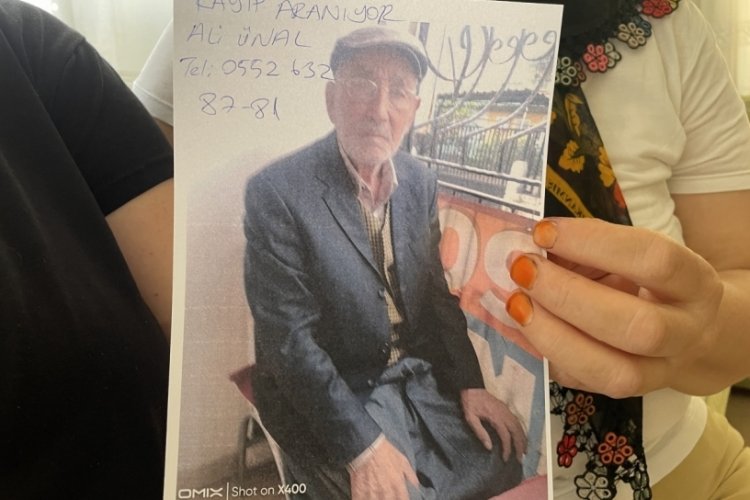 KAYIP ARANIYOR
ALİ ÜNAL
Tel: 0552 632
87-81
OMIX Shot on X400